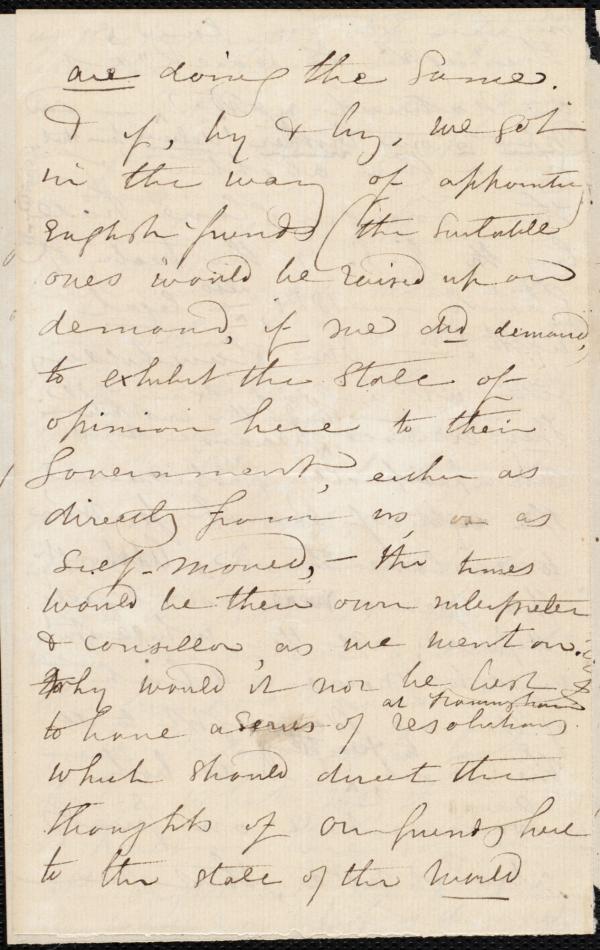 are doing the same.
& if, by & by, we got
in the way of appointing
English friends (the suitable
ones would be raised up on
demand, if we did demand,
to exhibit the state of
opinion here to their
Government, either as
directly from us, or as
self-moved, - the times
would be their own interpreter
& consellor, as we went on.
Why would it not be best
at Framingham
to have a series of resolutions
which should direct the
thoughts of our friends here
to the state of the World